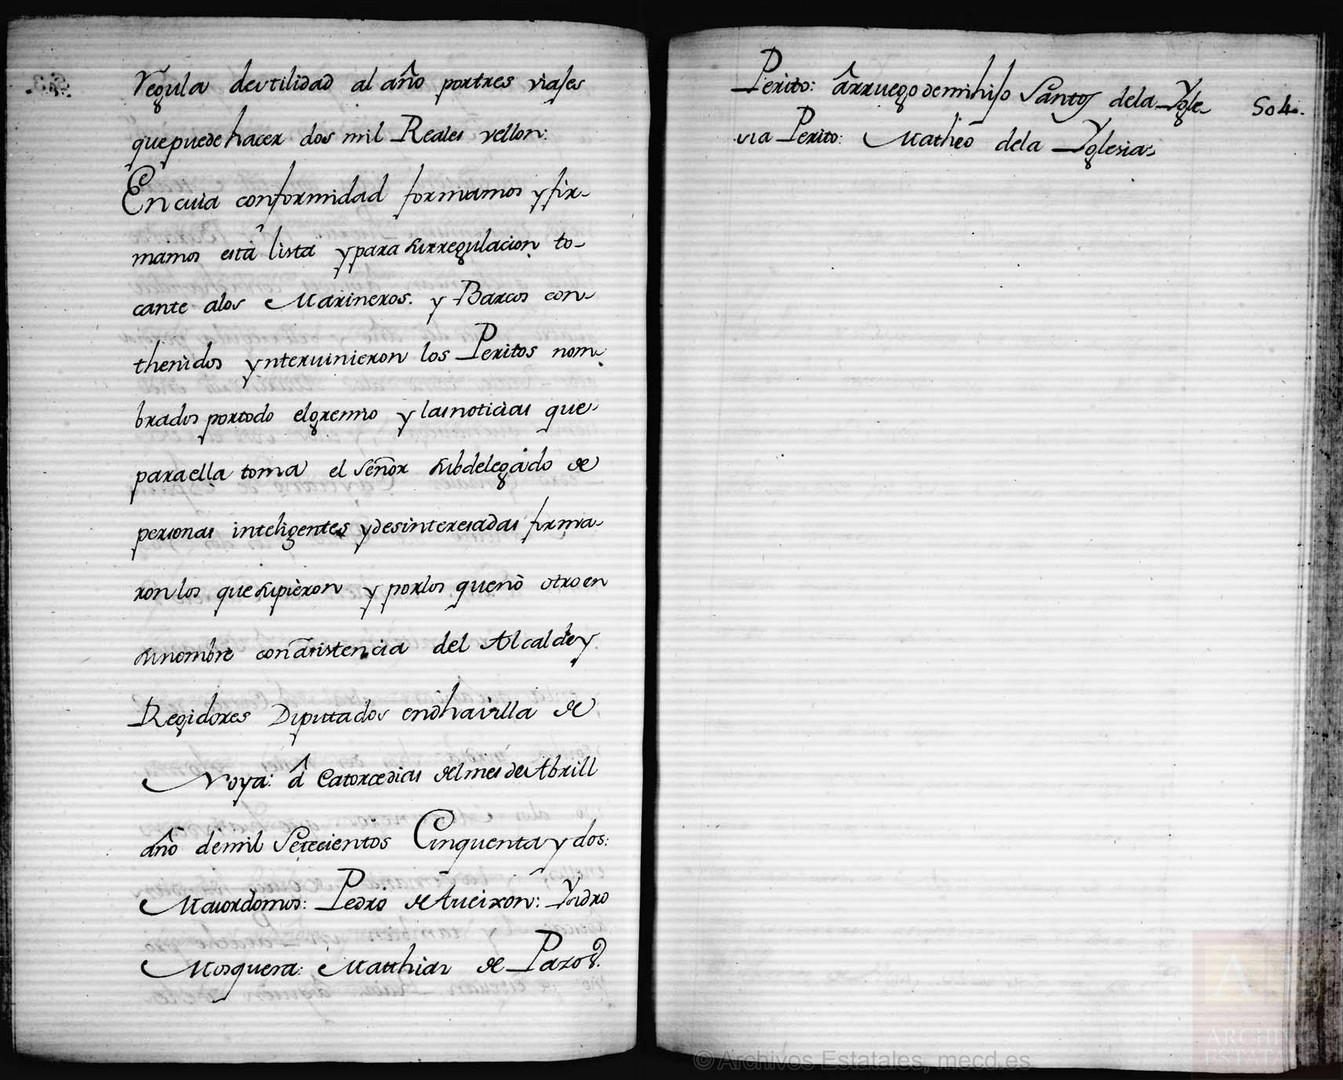 Regula deutilidad al año portres viajes
quepuedehacer dos mil Reales vellon:
En cuia conformidad formamos y fir-
mamos esta lista y para surregulacion to-
cante alos Marineros. y Barcos con-
thenidos ynteruinieron los Peritos nom-
brados portodo elgremio y lasnoticias que
paraella toma el señor subdelegado de
personas inteligentes ydesinteresadas firma-
ron los que supieron y porlos quenò otro en
sunombre conasistencia del Alcalde y
Regidores Diputados endhavilla de
Noya: â Catorcedias delmes de Abrill
año demil Setecientos Cinquenta y dos:
Maiordomos: Pedro de Aueixon: Ysidro
Mosquera: Matthias de Pazos.
Perito: Arruego demihijo Santos dela Ygle-
sia Perito: Matheo dela Yglesia
504.
© Archivos Estatales, mecd.es